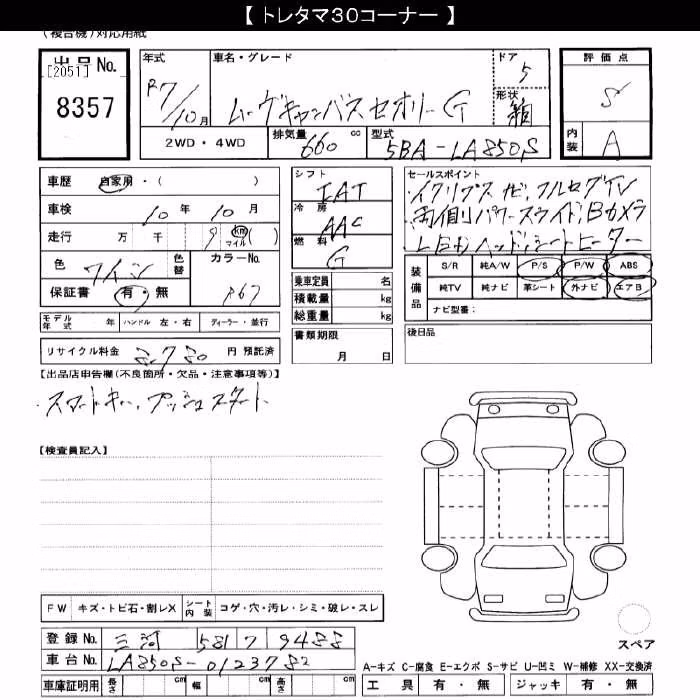 【 トレタマ30コーナー 】
(複合機)対応用紙
出品No.
[2051]
8357
年式 R7/10月
車名・グレード ムーヴキャンバスセオリーG
ドア 5
形状 箱
評価点 S
内装 A
2WD・4WD
排気量 660 cc
型式 5BA-LA850S
車歴 自家用・( )
車検 10年10月
走行 万 千 9 km マイル ( )
色 ワイン
色替
カラーNo.
保証書 有・無
モデル年式 年 ハンドル 左・右 ディーラー・並行
リサイクル料金 円 預託済
シフト IAT
冷房 AAC
燃料 G
乗車定員 名
積載量 kg
総重量 kg
書類期限
月 日
セールスポイント
イクリプスナビ,フルセグTV
両側パワースライド,Bカメラ
LEDヘッド,シートヒーター
装備品
S/R 純A/W P/S P/W ABS
純TV 純ナビ 革シート 外ナビ エアB
ナビ型番:
後日品
【出品店申告欄(不良箇所・欠品・注意事項等)】
・スマートキー,プッシュスタート
【検査員記入】
FW キズ・トビ石・割レX シート内装 コゲ・穴・汚レ・シミ・破レ・スレ
登録No. 三河 581 ワ 9488
車台No. LA850S-0123782
車庫証明用 長さ cm 幅 cm 高さ cm
スペア
A-キズ C-腐食 E-エクボ S-サビ U-凹ミ W-補修 XX-交換済
工具 有・無 ジャッキ 有・無